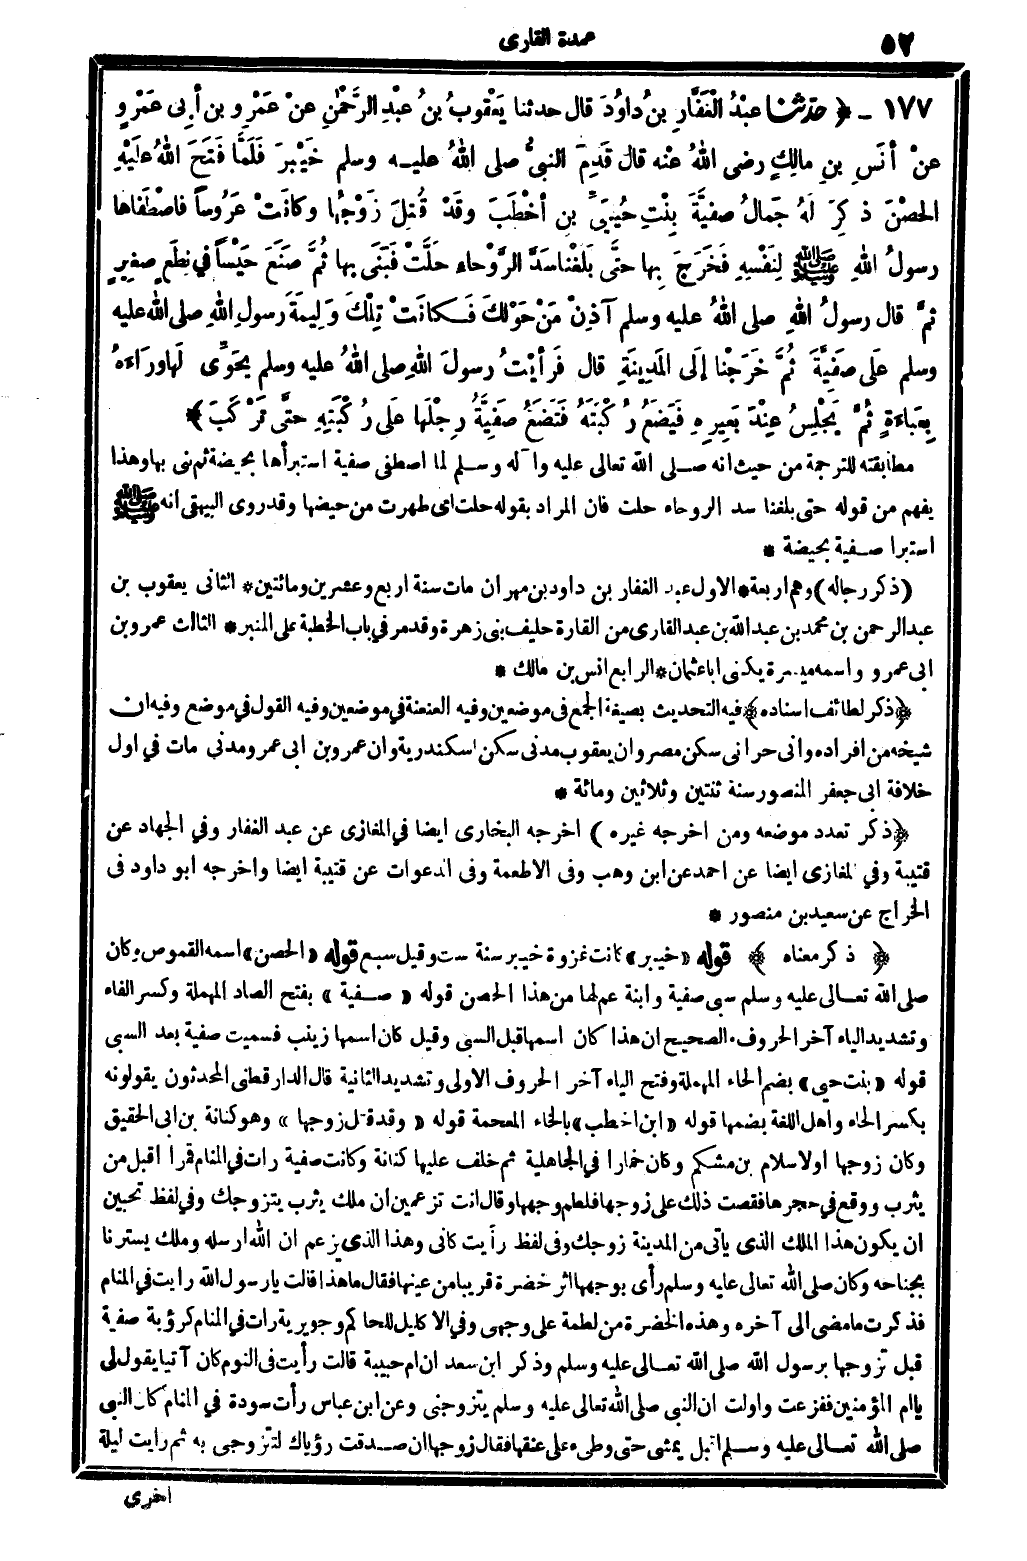 ٥٢
عمدة القارى
١٧٧ ـ ﴿ حَدَّثَنَا عبْدُ الْغَفَّارِ بنُ داوُدَ قال حدثنا يَعْقوبُ بنُ عبْدِ الرَّحْمٰنِ عنْ عَمْرِو بنِ أبِى عَمْرٍو
عنْ أنَسِ بنِ مالِكٍ رضى اللهُ عنه قال قَدِمَ النبىُّ صلى اللهُ عليه وسلم خَيْبَرَ فَلَمَّا فَتَحَ اللهُ عَلَيْهِ
الحِصْنَ ذُكِرَ لهُ جَمالُ صَفِيَّةَ بِنْتِ حُيَيِّ بنِ أخْطَبَ وقَدْ قُتِلَ زَوْجُها وكانَتْ عَرُوساً فاصْطَفاها
رسولُ اللهِ ﷺ لِنَفْسِهِ فَخَرَجَ بِها حتَّى بَلَغْنا سَدَّ الرَّوْحاءِ حَلَّتْ فَبَنَى بِها ثُمَّ صَنَعَ حَيْساً في نِطَعٍ صغِيرٍ
ثمَّ قال رسولُ اللهِ صلى اللهُ عليه وسلم آذِنْ مَنْ حَوْلَكَ فَكانَتْ تِلْكَ وَلِيمَةَ رسولِ اللهِ صلى الله عليه
وسلم علَى صَفِيَّةَ ثُمَّ خَرَجْنا إلَى المَدِينَةِ قال فَرَأيْتُ رسولَ اللهِ صلى اللهُ عليه وسلم يُحَوِّى لَها وراءَهُ
بِعَباءَةٍ ثُمَّ يَجْلِسُ عِنْدَ بَعِيرِهِ فَيَضَعُ رُكْبَتَهُ فَتَضَعُ صَفِيَّةُ رِجْلَها علَى رُكْبَتِهِ حتَّى تَرْكَبَ ﴾
مطابقته للترجمة من حيث انه صلى الله تعالى عليه وآله وسلم لما اصطفى صفية استبرأها بحيضة ثم بنى بها وهذا
يفهم من قوله حتى بلغنا سد الروحاء حلت فان المراد بقوله حلت اى طهرت من حيضها وقدروى البيهقى انه ﷺ
استبرا صفية بحيضة *
(ذكر رجاله) وهم اربعة * الاول عبد الغفار بن داود بن مهران مات سنة اربع وعشرين ومائتين * الثانى يعقوب بن
عبدالرحمن بن محمد بن عبدالله بن عبدالقارى من القارة حليف بنى زهرة وقدمر في باب الخطبة على المنبر * الثالث عمرو بن
ابى عمرو واسمه ميسرة يكنى اباعثمان * الرابع انس بن مالك *
﴿ذكر لطائف اسناده﴾ فيه التحديث بصيغة الجمع فى موضعين وفيه العنعنة في موضعين وفيه القول في موضع وفيه ان
شيخه من افراده وانى حرانى سكن مصر وان يعقوب مدنى سكن اسكندرية وان عمرو بن ابى عمرو مدنى مات في اول
خلافة ابى جعفر المنصور سنة ثنتين وثلاثين ومائة *
﴿ذكر تعدد موضعه ومن اخرجه غيره ) اخرجه البخارى ايضا في المغازى عن عبد الغفار وفي الجهاد عن
قتيبة وفي المغازى ايضا عن احمد عن ابن وهب وفى الاطعمة وفى الدعوات عن قتيبة ايضا واخرجه ابو داود فى
الخراج عن سعيد بن منصور *
﴿ ذكر معناه ﴾ قوله «خيبر» كانت غزوة خيبر سنة ست وقيل سبع قوله «الحصن» اسمه القموص وكان
صلى الله تعالى عليه وسلم سبى صفية وابنة عم لها من هذا الحصن قوله « صفية » بفتح الصاد المهملة وكسر الفاء
وتشديد الياء آخر الحروف. الصحيح ان هذا كان اسمها قبل السبى وقيل كان اسمها زينب فسميت صفية بعد السبى
قوله «بنت حيى» بضم الحاء المهملة وفتح الياء آخر الحروف الاولى وتشديد الثانية قال الدارقطنى المحدثون يقولونه
بكسر الحاء واهل اللغة بضمها قوله «ابن اخطب» بالخاء المعجمة قوله « وقد قتل زوجها » وهو كنانة بن ابى الحقيق
وكان زوجها اولا سلام بن مشكم وكان خمارا في الجاهلية ثم خلف عليها كنانة وكانت صفية رات في المنام قمرا اقبل من
يثرب ووقع في حجرها فقصت ذلك على زوجها فلطم وجهها وقال انت تزعمين ان ملك يثرب يتزوجك وفي لفظ تحبين
ان يكون هذا الملك الذى ياتى من المدينة زوجك وفى لفظ رأيت كانى وهذا الذى يزعم ان الله ارسله وملك يسترنا
بجناحه وكان صلى الله تعالى عليه وسلم رأى بوجهها اثر خضرة قريبا من عينها فقال ما هذا قالت يارسول الله رايت في المنام
فذكرت ما مضى الى آخره وهذه الخضرة من لطمة على وجهى وفي الاكليل للحاكم وجويرية رات في المنام كرؤية صفية
قبل تزوجها برسول الله صلى الله تعالى عليه وسلم وذكر ابن سعد ان ام حبيبة قالت رأيت فى النوم كان آتيا يقول لى
ياام المؤمنين ففزعت واولت ان النبى صلى الله تعالى عليه وسلم يتزوجنى وعن ابن عباس رأت سودة في المنام كان النبى
صلى الله تعالى عليه وسلم اقبل يمشى حتى وطىء على عنقها فقال زوجها ان صدقت رؤياك لتزوجى به ثم رايت ليلة
اخرى